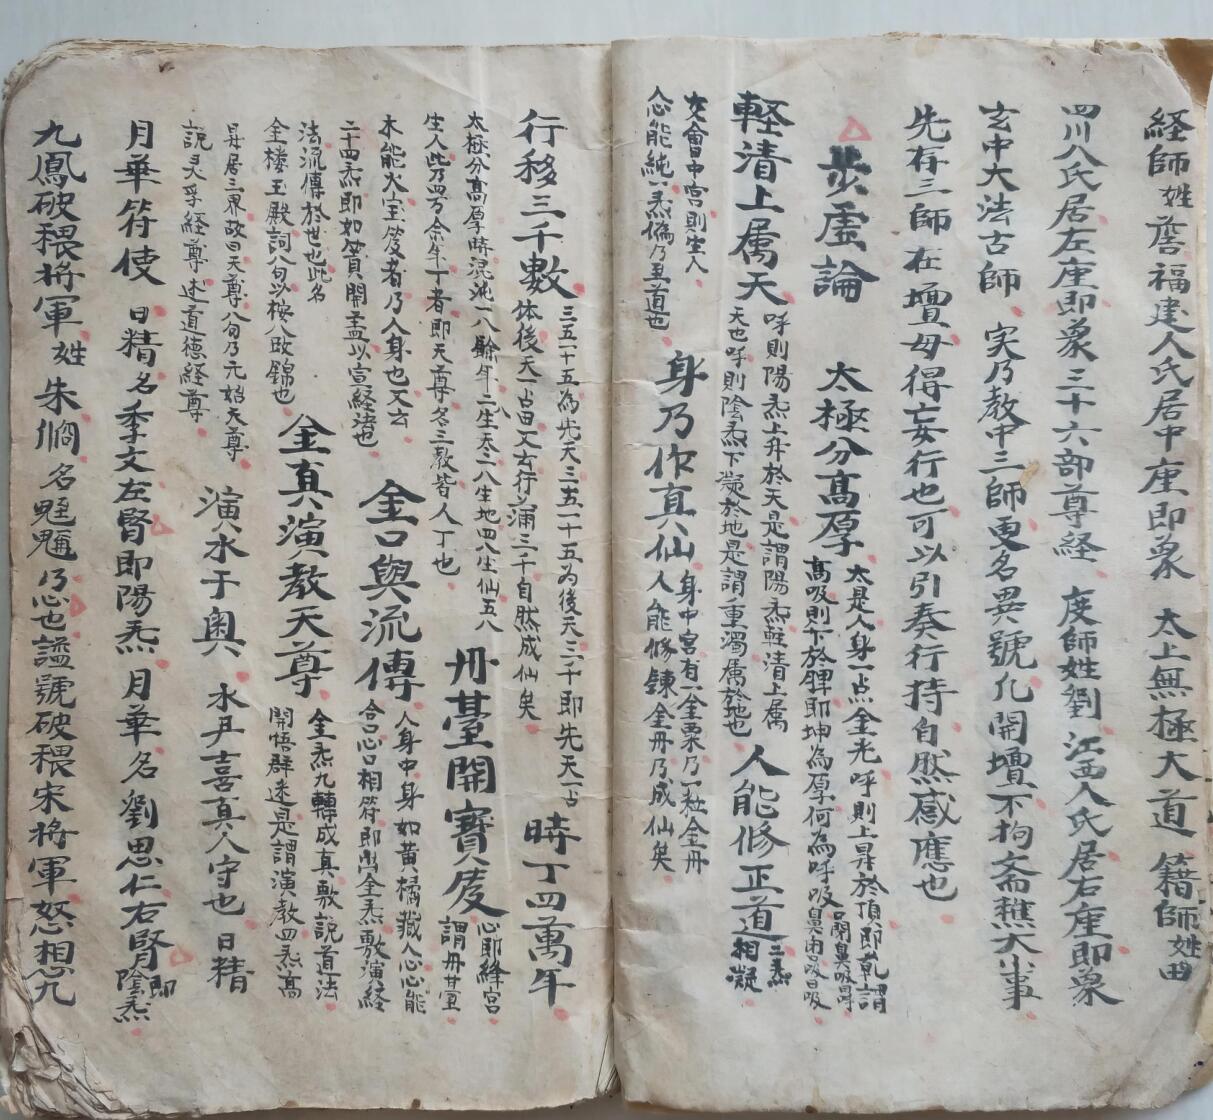 経師姓詹福建人氏居中座即象 太上無極大道 籍師姓田
四川人氏居左座即象三十六部尊経 度師姓劉江西人氏居右座即象
玄中大法古師 实乃教中三師更名異號凢開壇不拘斋醮大小事
先有三師在壇毋得妄行也可以引奏行持自然感應也
步虛論 太極分高厚 太是人身一点金光呼則上昇於頂即乾謂
高吸則下於脾即坤為厚何為呼吸鼻
軽清上属天 呼則陽炁上升於天是謂陽炁軽清上属
天也呼則陰炁下凝於地是謂重濁属於地也 人能修正道 二炁
相凝
交會中宮則生人
心能純一炁偹乃丑道也 身乃作真仙 身中宮有一金粟乃一粒金丹
人能修鍊金丹乃成仙矣
行移三千數 三五十五為先天三五一十五为後天三千即先天一占
体後天一占田又云行满三千自然成仙矣 時丁四萬年
太極分高厚時混沌一八餘年二生天二八生地四八生仙五八
生人此乃四万余年丁者即天尊名三教皆人丁也 丹䑓開寶笈 心即絳宮
謂丹䑓
木能火宝笈者乃人身也又云
二十四炁即如筲開盂以宣経法也 金口與流傳 人身中身如黄橘藏人心能
合口心口相符即出金炁敷演経
法流傳於世也此名
金楼玉殿詞八句以按八改錦也 金真演教天尊 金炁九轉成真敷説道法
開悟群迷是謂演教四炁高
昇居三界故曰天尊八句乃元始天尊
説灵孚経尊述道德経尊 演水于奥 水丹吉喜真人守也 日精
月華符使 日精名李文左腎即陽炁月華名劉思仁右腎即
陰炁
九鳳破穢将軍姓朱 名 乃心也謚號破穢宋将軍怒相心九